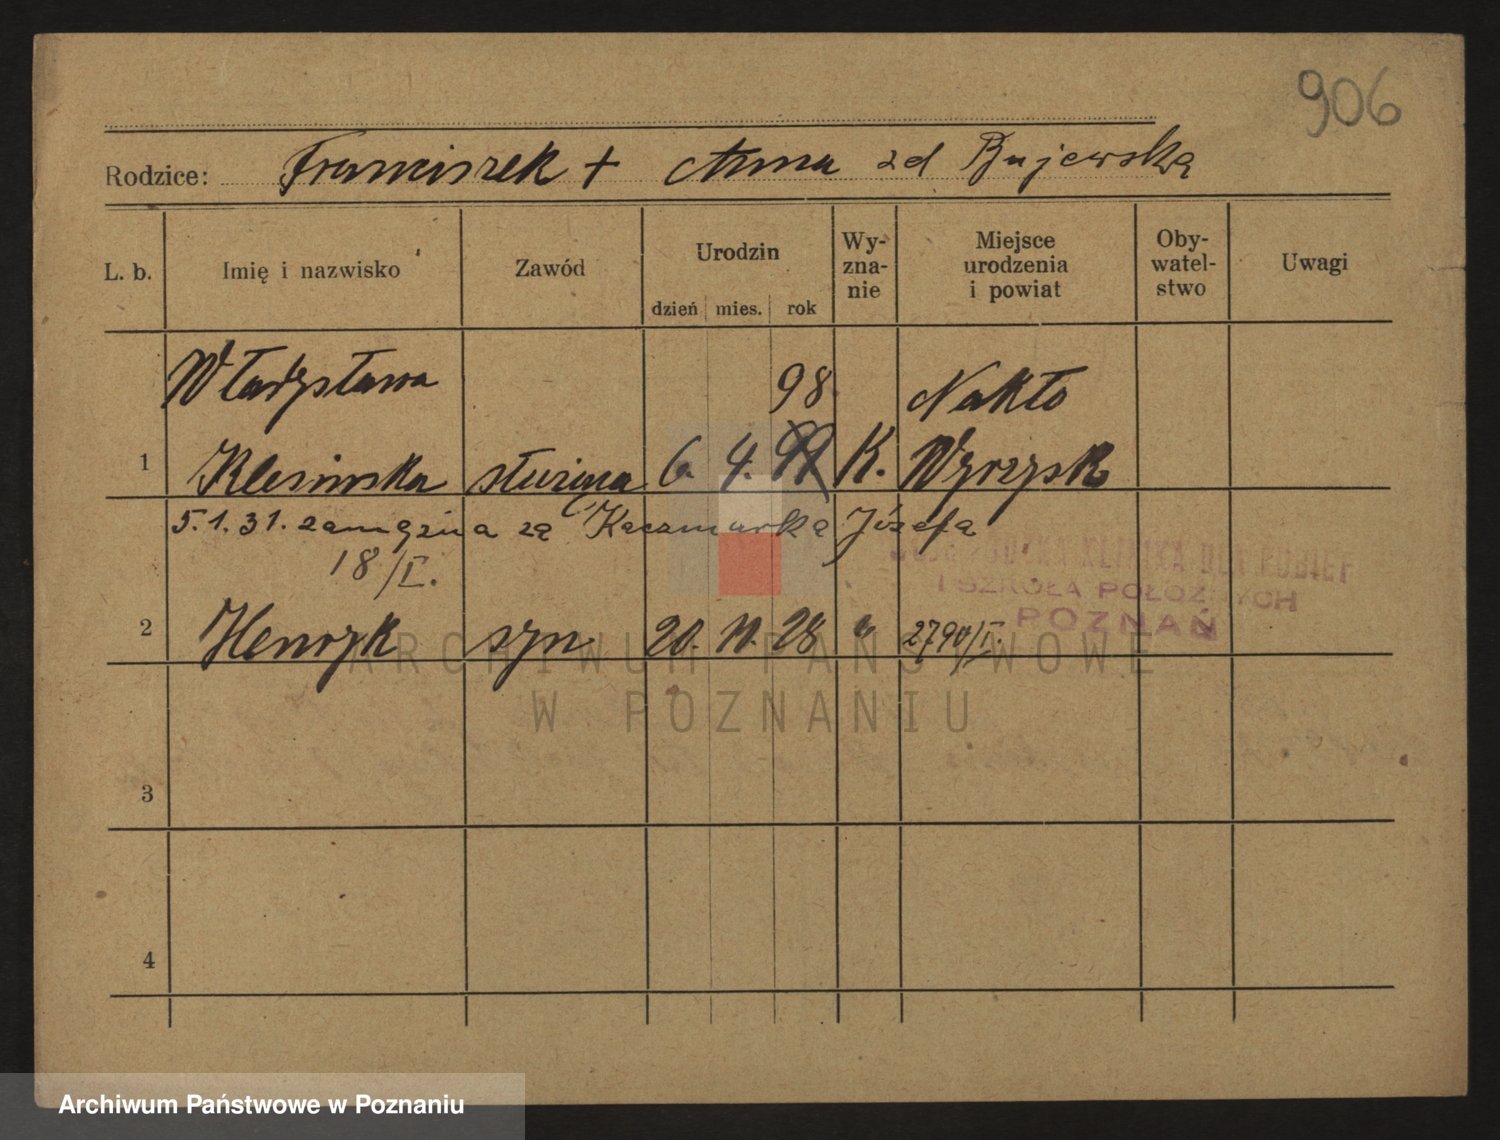 906
Rodzice: Franciszek + Anna zd Bujewska
L. b. Imię i nazwisko Zawód Urodzin dzień mies. rok Wy-zna-nie Miejsce urodzenia i powiat Oby-watel-stwo Uwagi
Władysława 98 Nakło
1 Klesińska służąca 6. 4. 99 K. Wyrzysk
5.1.31. zamężna za Kaczmarka Józefa
18/I.
KLINIKA DLA KOBIET
I SZKOŁA POŁOŻNYCH
POZNAŃ
2 Henryk syn 20. 11. 28 " 2790/I.
ARCHIWUM PAŃSTWOWE
W POZNANIU
3
4
Archiwum Państwowe w Poznaniu